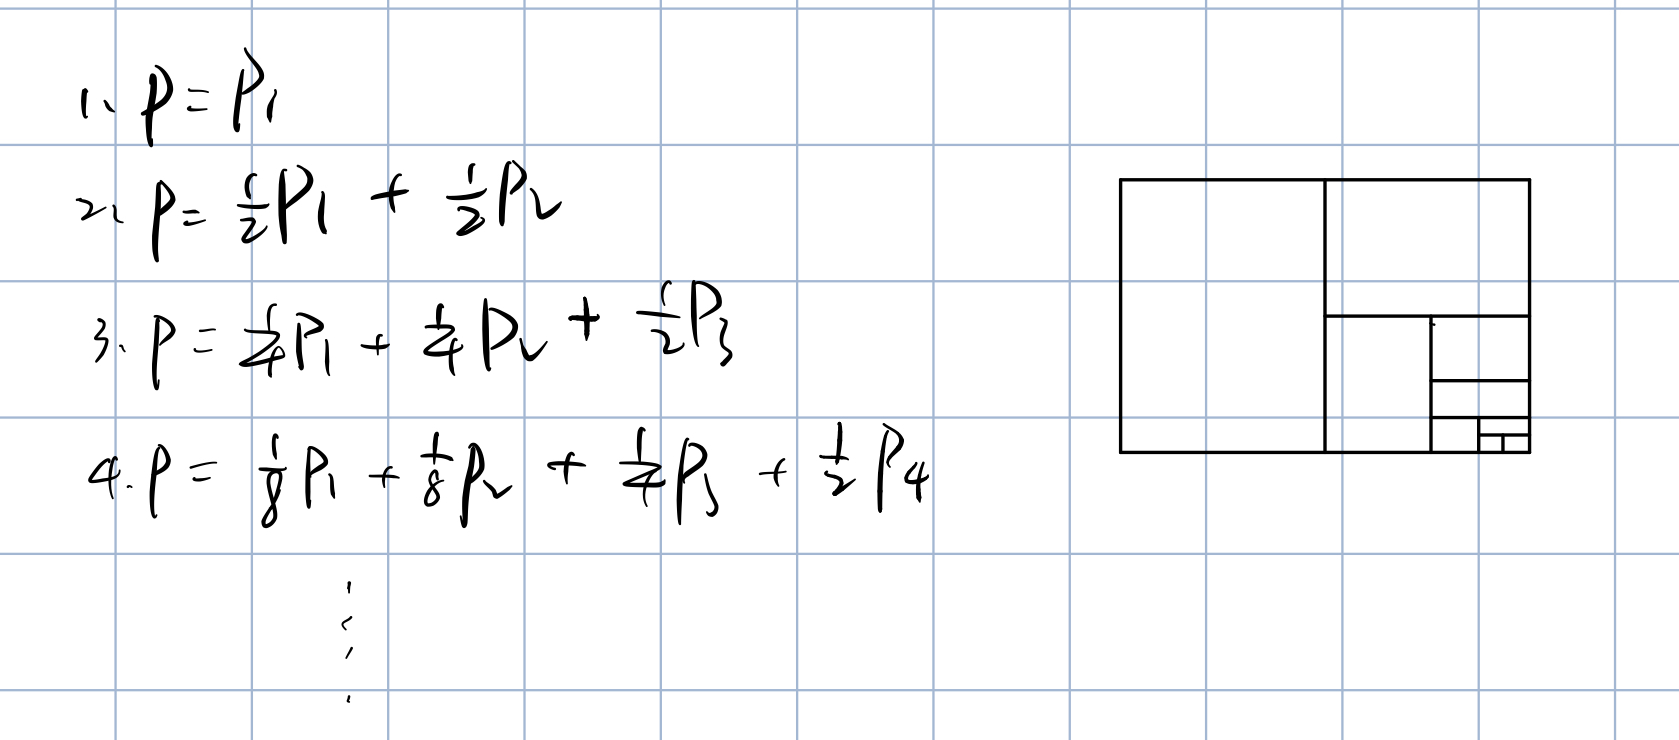 1、P = P₁
2、P = ½P₁ + ½P₂
3. P = ¼P₁ + ¼P₂ + ½P₃
4. P = ⅛P₁ + ⅛P₂ + ¼P₃ + ½P₄
⋮